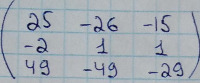 25 -26 -15
-2 1 1
49 -49 -29